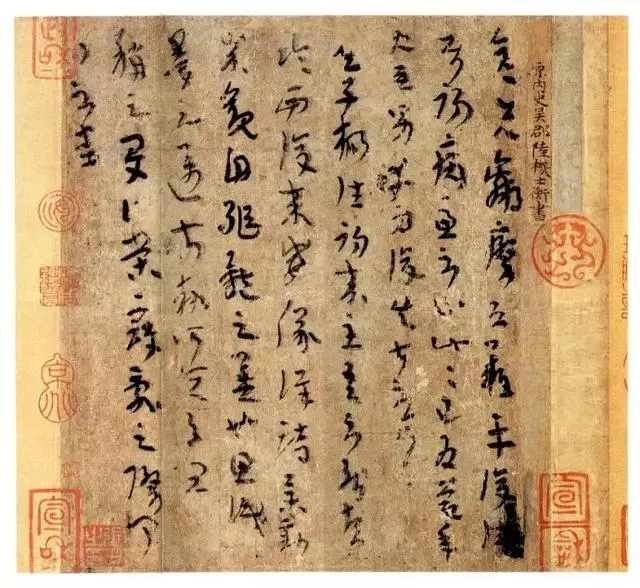 原內史吳郡陸機士衡書
彦先羸瘵恐難平復往
屬初病慮不止此此已為慶承
使唯男幸為復失前憂耳
吳子楊往初來主吾不能盡
臨西復來威儀詳跱舉動
成觀自軀體之美也思識
量之邁前執所恒有宜
稱之夏伯榮寇亂之際聞
問不悉
宣和
宣和